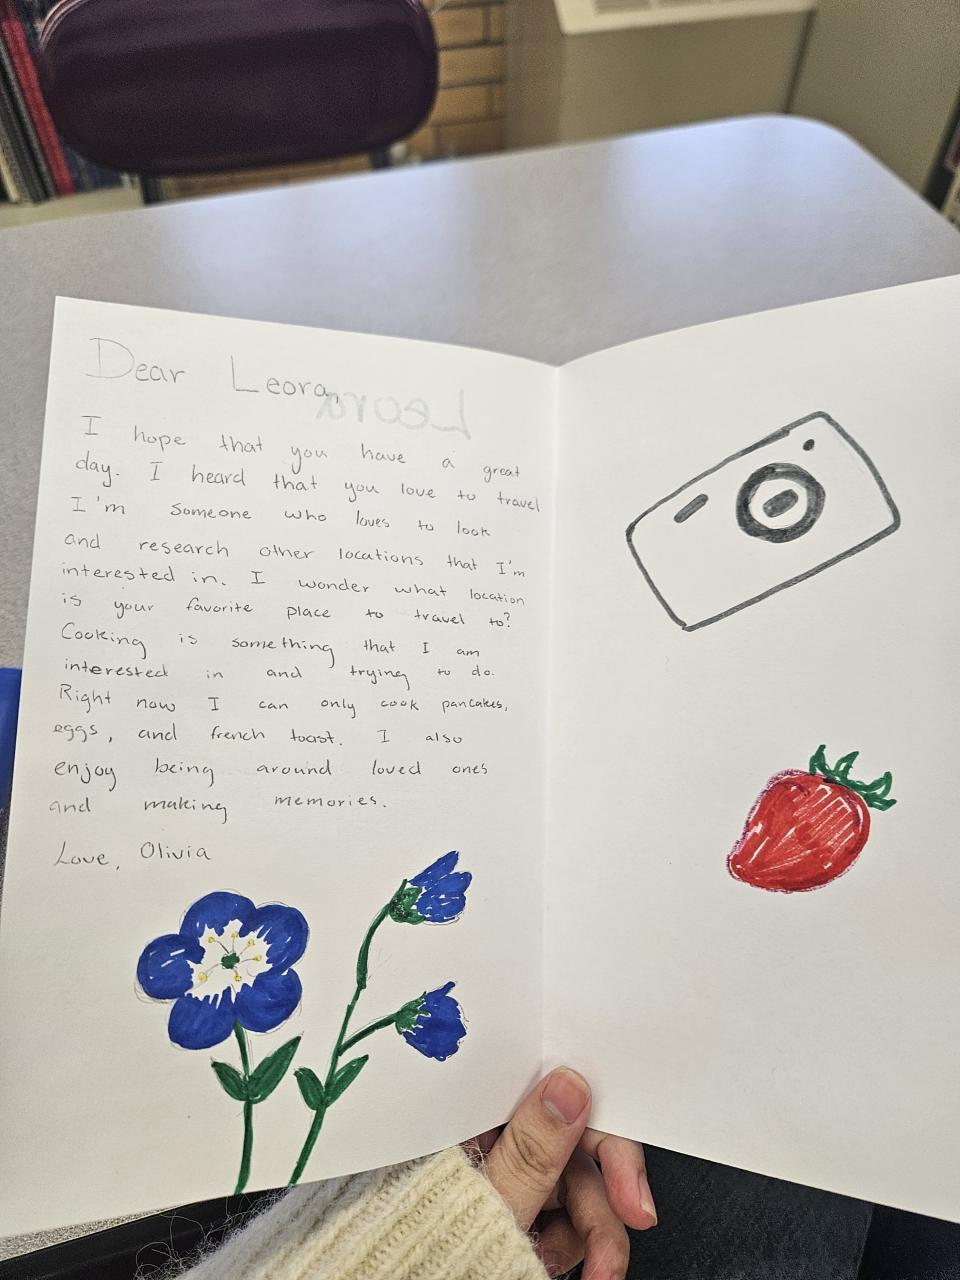 Dear Leora,
Leora
I hope that you have a great
day. I heard that you love to travel
I'm someone who loves to look
and research other locations that I'm
interested in. I wonder what location
is your favorite place to travel to?
Cooking is something that I am
interested in and trying to do.
Right now I can only cook pancakes,
eggs, and french toast. I also
enjoy being around loved ones
and making memories.
Love, Olivia